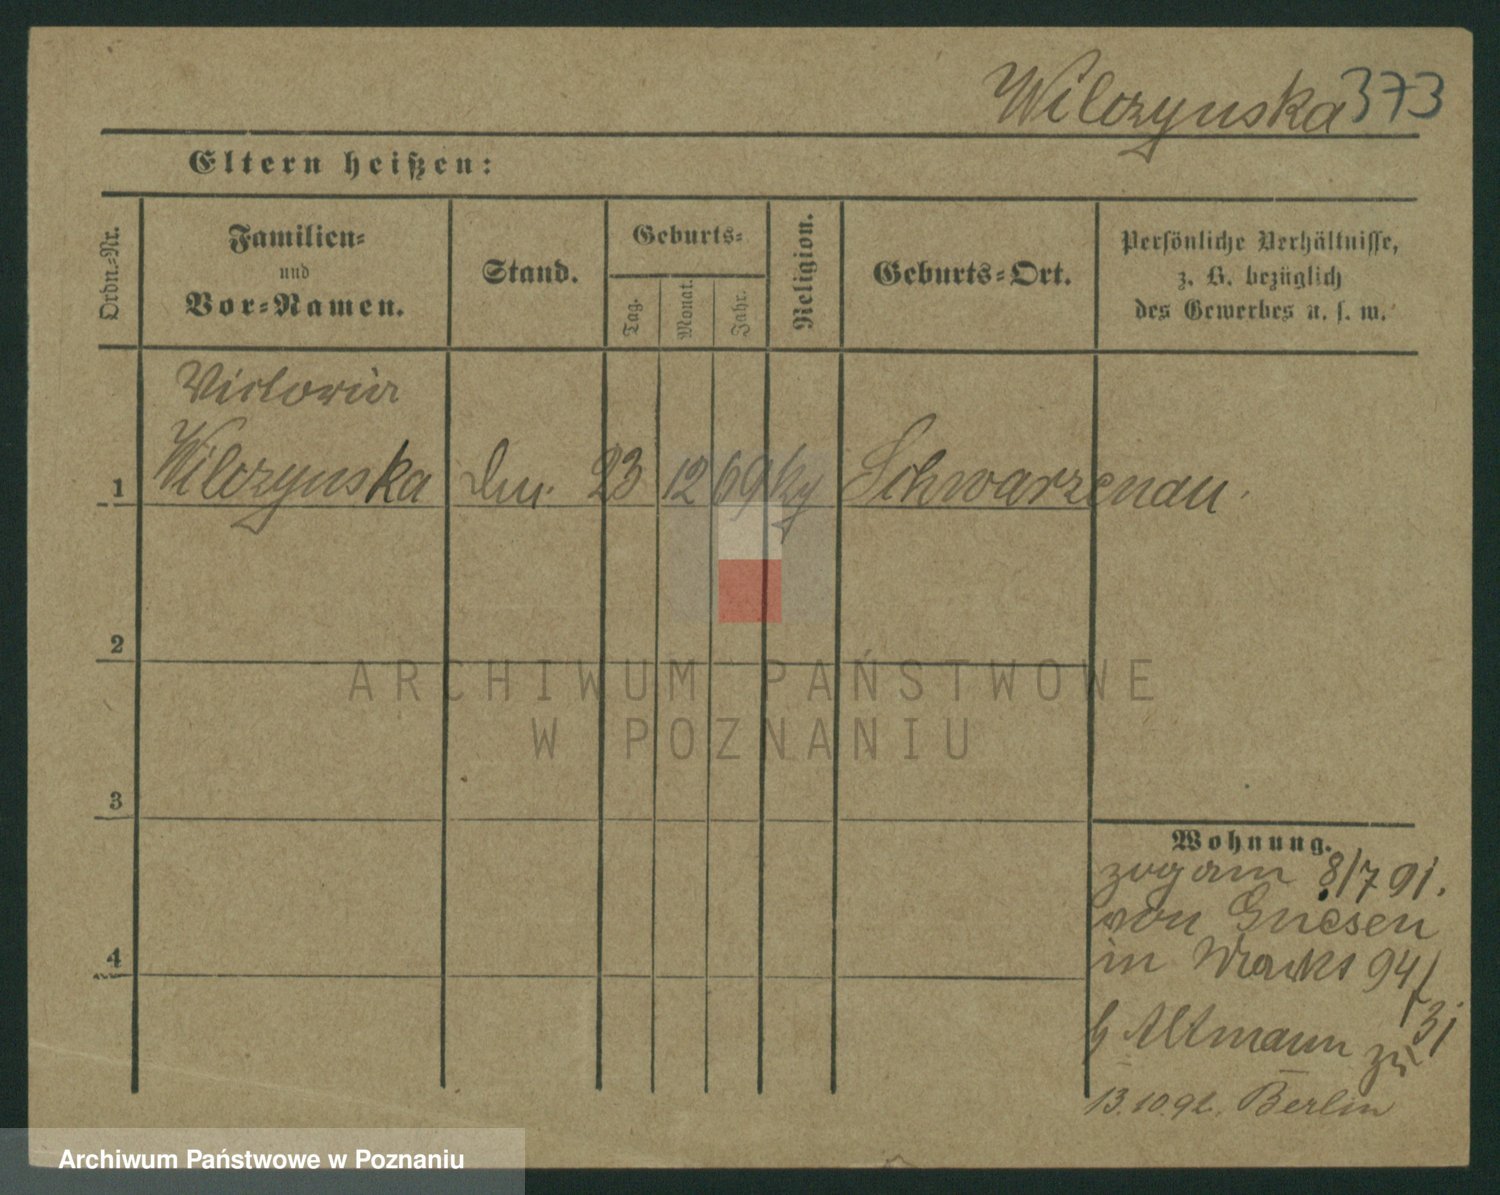 Wilczynska 373
Eltern heißen:
Ordn.-Nr.
Familien-
und
Vor-Namen.
Stand.
Geburts-
Tag.
Monat.
Jahr.
Religion.
Geburts-Ort.
Persönliche Verhältnisse,
z. B. bezüglich
des Gewerbes u. s. w.
Victoria
1 Wilczynska 23 12 69 Schwarzenau.
2
3
4
ARCHIWUM PAŃSTWOWE
W POZNANIU
Wohnung.
zog am 8/7 91.
von Gnesen
in 94/
Altmann zu
13.10.92. Berlin
Archiwum Państwowe w Poznaniu